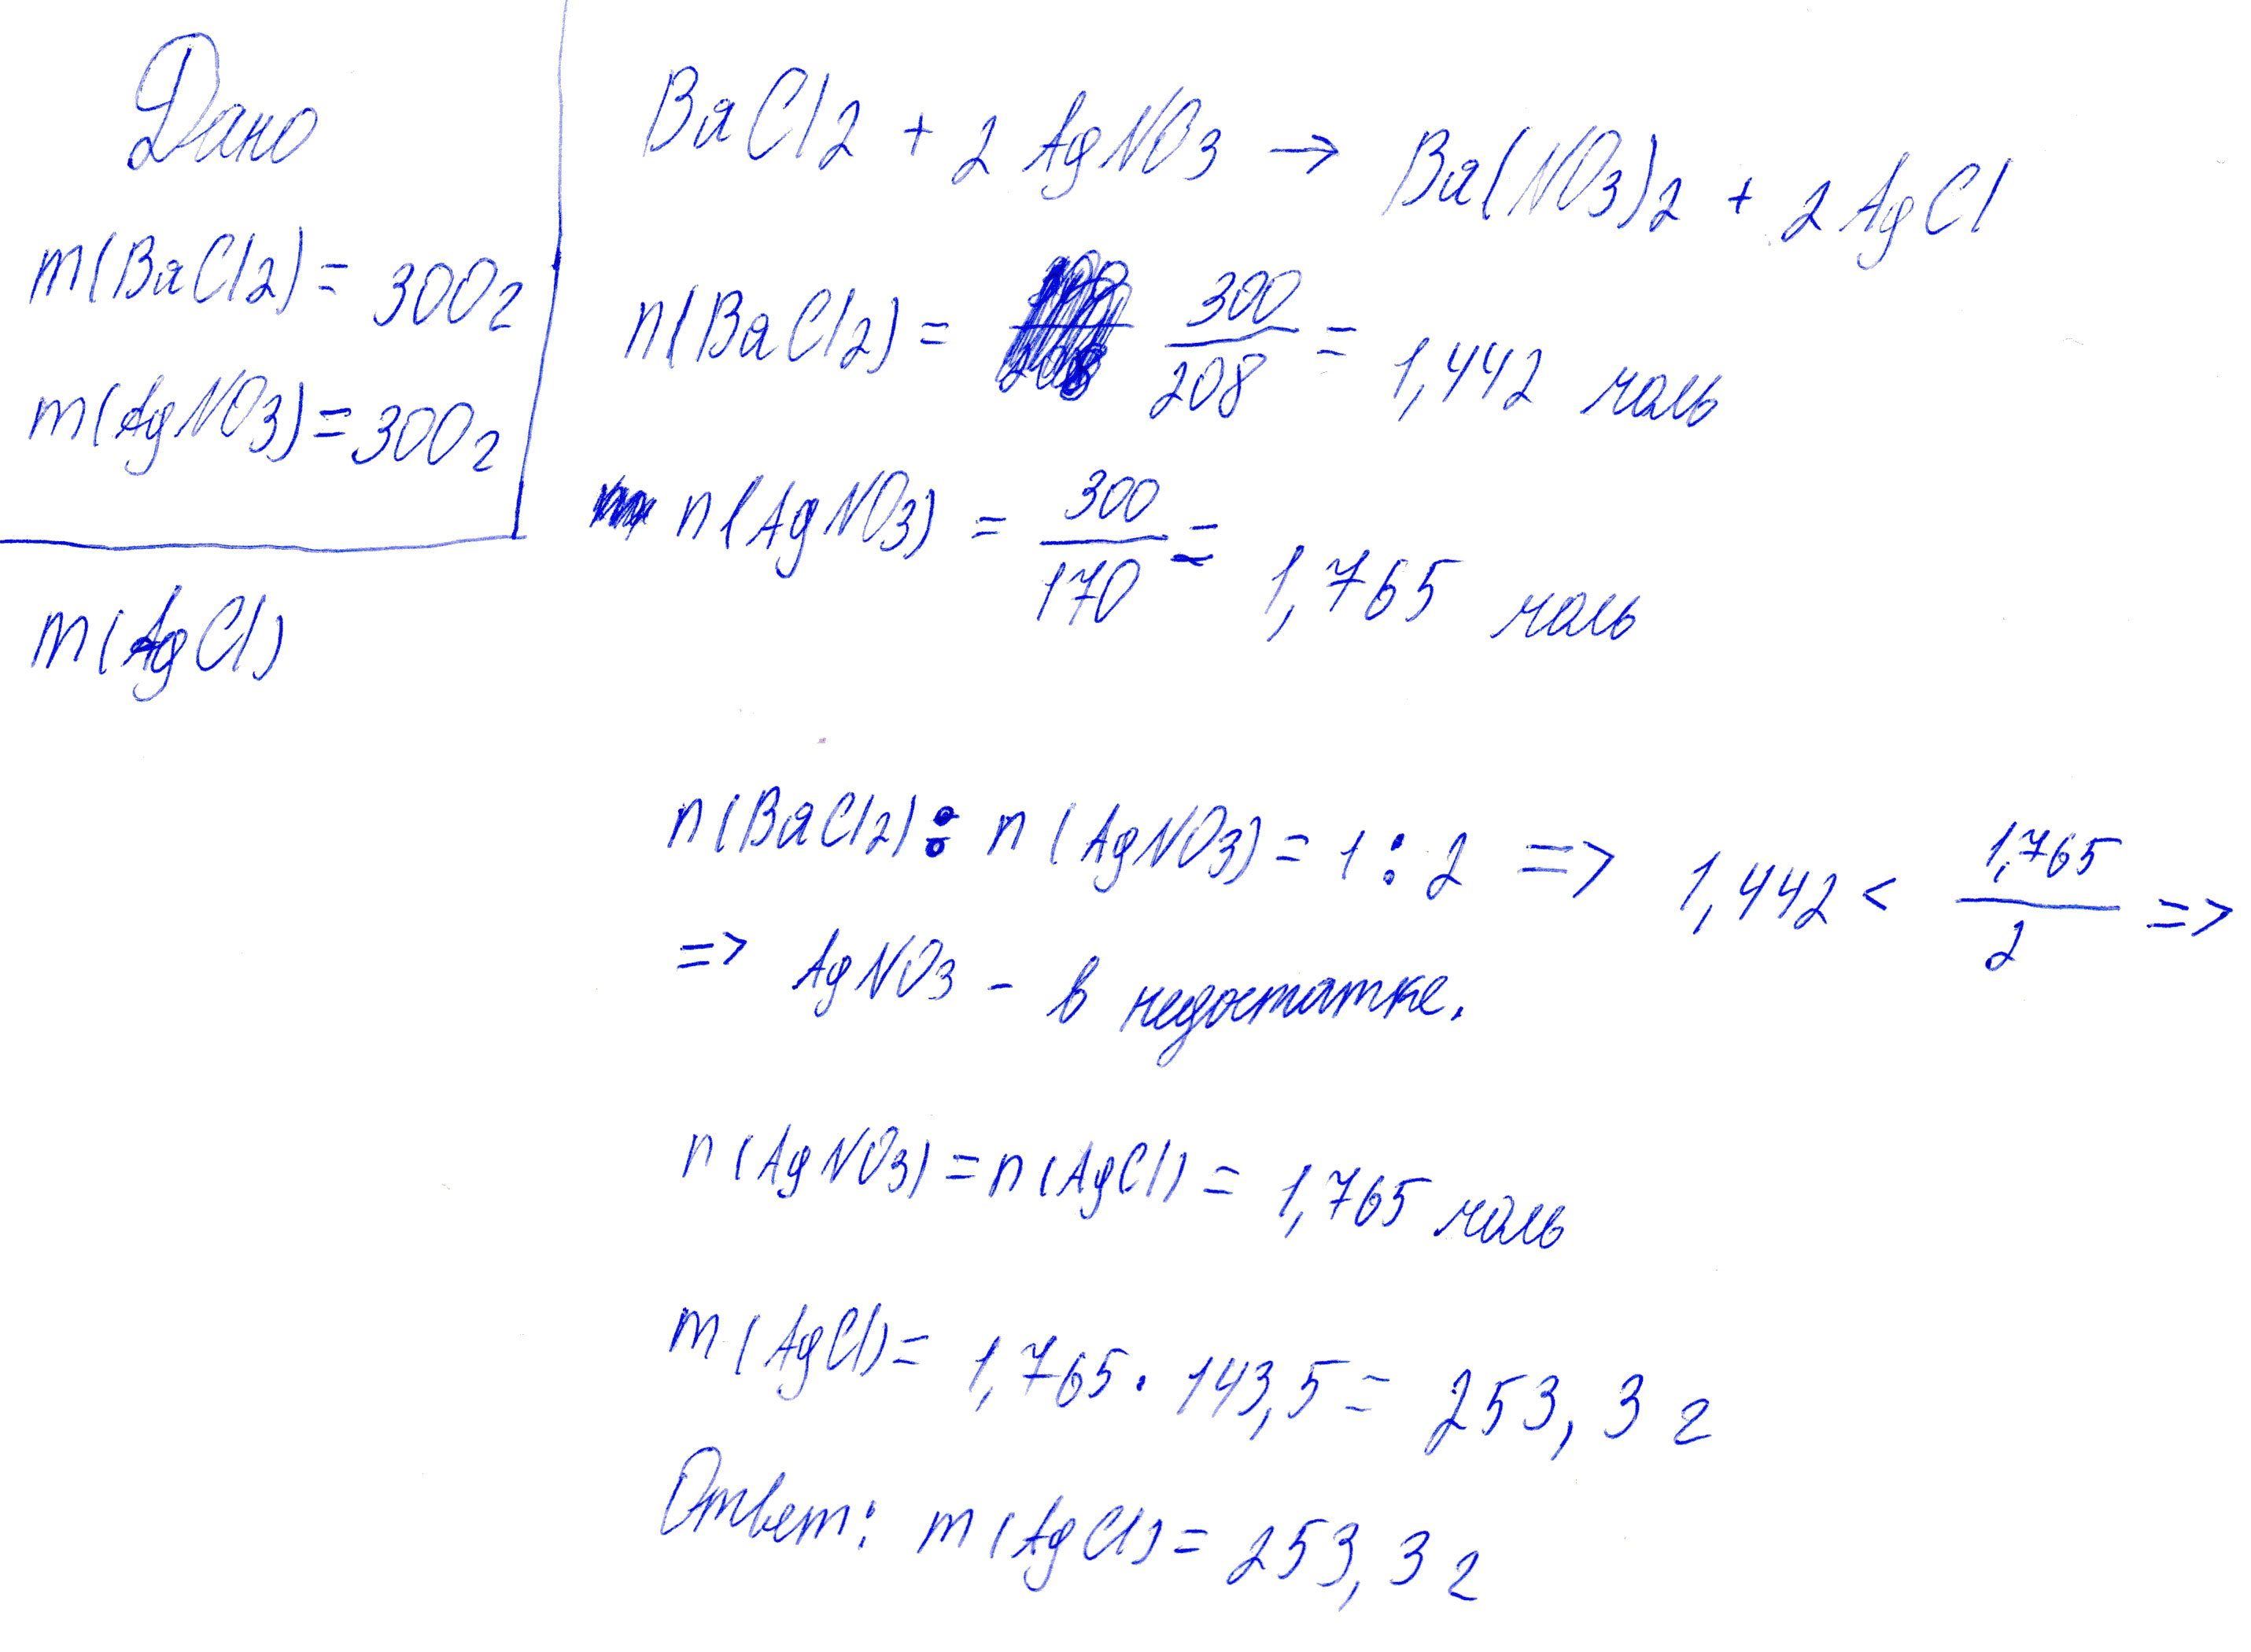 Дано
m(BaCl2) = 300г
m(AgNO3) = 300г
m(AgCl)
BaCl2 + 2 AgNO3 → Ba(NO3)2 + 2 AgCl
n(BaCl2) = 300/208 = 1,442 моль
n(AgNO3) = 300/170 = 1,765 моль
n(BaCl2) : n(AgNO3) = 1 : 2 => 1,442 < 1,765/2 =>
=> AgNO3 - в недостатке.
n(AgNO3) = n(AgCl) = 1,765 моль
m(AgCl) = 1,765 · 143,5 = 253,3 г
Ответ: m(AgCl) = 253,3 г